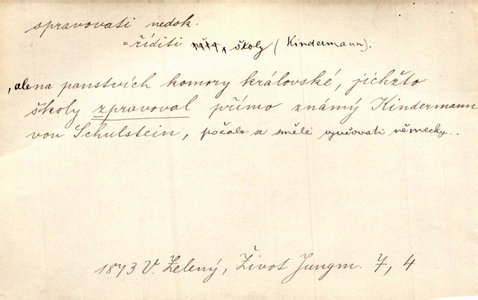 spravovati nedok.
= říditi školy (Kindermann).
, ale na panstvích komory královské, jichžto
školy zpravoval přímo známý Kindermann
von Schulstein, počalo se směle vyučovati německy.
1873 V. Zelený, Život Jungm. 7, 4